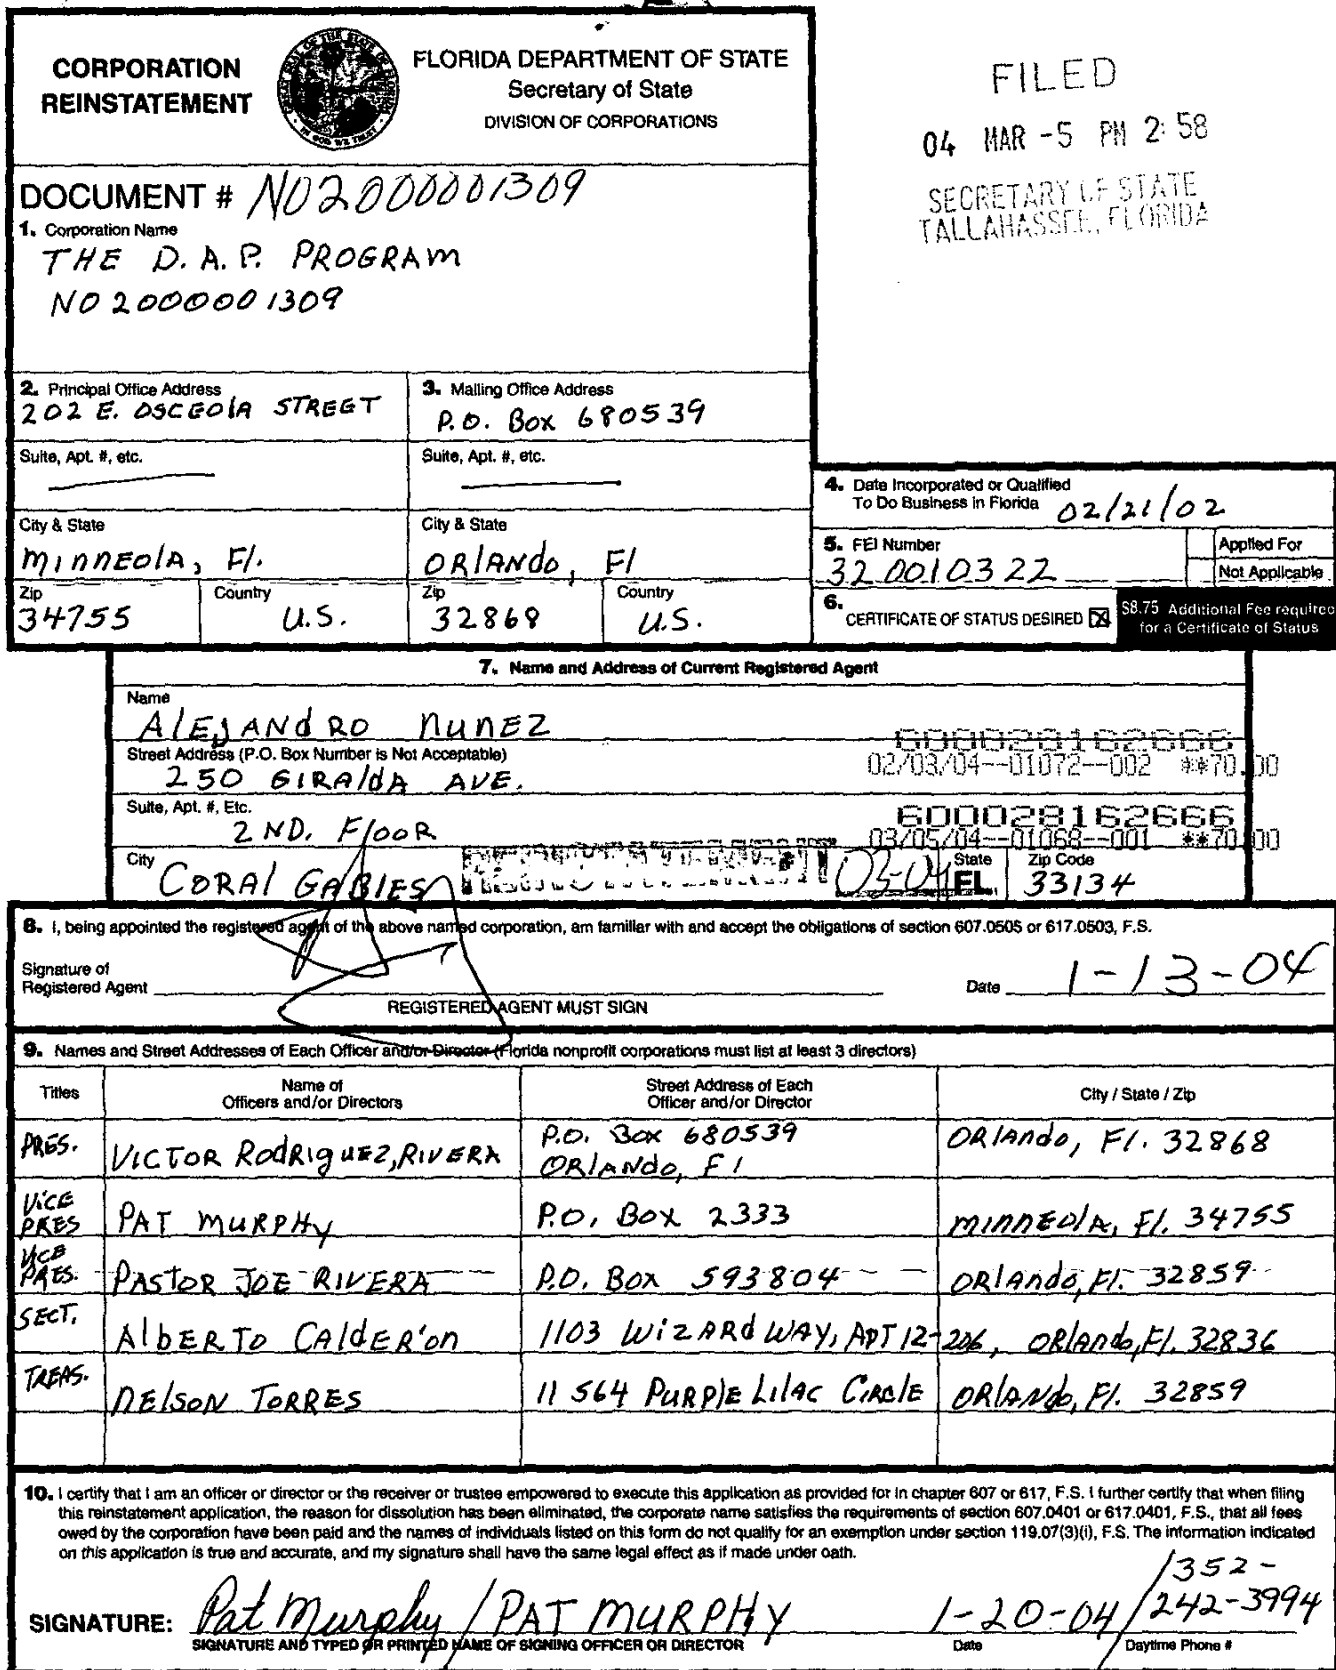 CORPORATION
REINSTATEMENT
FLORIDA DEPARTMENT OF STATE
Secretary of State
DIVISION OF CORPORATIONS
FILED
04 MAR -5 PM 2:58
SECRETARY OF STATE
TALLAHASSEE, FLORIDA
DOCUMENT # N02000001309
1. Corporation Name
THE D.A.P. PROGRAM
N02000001309
2. Principal Office Address
202 E. OSCEOLA STREET
3. Mailing Office Address
P.O. Box 680539
Suite, Apt. #, etc.
Suite, Apt. #, etc.
City & State
MINNEOLA, Fl.
City & State
ORLANDO, Fl
Zip
34755
Country
U.S.
Zip
32868
Country
U.S.
4. Date Incorporated or Qualified
To Do Business in Florida 02/21/02
5. FEI Number
320010322
Applied For
Not Applicable
6. CERTIFICATE OF STATUS DESIRED
$8.75 Additional Fee required
for a Certificate of Status
7. Name and Address of Current Registered Agent
Name
ALEJANDRO NUNEZ
Street Address (P.O. Box Number is Not Acceptable)
250 GIRALDA AVE.
600028162666
02/03/04--01072--002 **70.00
Suite, Apt. #, Etc.
2 ND. FLOOR
600028162666
03/05/04--01068--001 **70.00
City
CORAL GABLES
03-04
State
FL
Zip Code
33134
8. I, being appointed the registered agent of the above named corporation, am familiar with and accept the obligations of section 607.0505 or 617.0503, F.S.
Signature of
Registered Agent
Date 1-13-04
REGISTERED AGENT MUST SIGN
9. Names and Street Addresses of Each Officer and/or Director (Florida nonprofit corporations must list at least 3 directors)
Titles
Name of
Officers and/or Directors
Street Address of Each
Officer and/or Director
City / State / Zip
PRES.
VICTOR RODRIGUEZ, RIVERA
P.O. Box 680539
ORLANDO, Fl
ORLANDO, Fl. 32868
VICE
PRES
PAT MURPHY
P.O. BOX 2333
MINNEOLA, Fl. 34755
VICE
PRES.
PASTOR JOE RIVERA
P.O. Box 593804
ORLANDO, Fl. 32859
SECT.
ALBERTO CALDER'ON
1103 WIZARD WAY, APT 12-206,
ORLANDO, Fl. 32836
TREAS.
NELSON TORRES
11564 PURPLE LILAC CIRCLE
ORLANDO, Fl. 32859
10. I certify that I am an officer or director or the receiver or trustee empowered to execute this application as provided for in chapter 607 or 617, F.S. I further certify that when filing
this reinstatement application, the reason for dissolution has been eliminated, the corporate name satisfies the requirements of section 607.0401 or 617.0401, F.S., that all fees
owed by the corporation have been paid and the names of individuals listed on this form do not qualify for an exemption under section 119.07(3)(i), F.S. The information indicated
on this application is true and accurate, and my signature shall have the same legal effect as if made under oath.
SIGNATURE: Pat Murphy / PAT MURPHY
1-20-04 / 352-
242-3994
SIGNATURE AND TYPED OR PRINTED NAME OF SIGNING OFFICER OR DIRECTOR
Date
Daytime Phone #